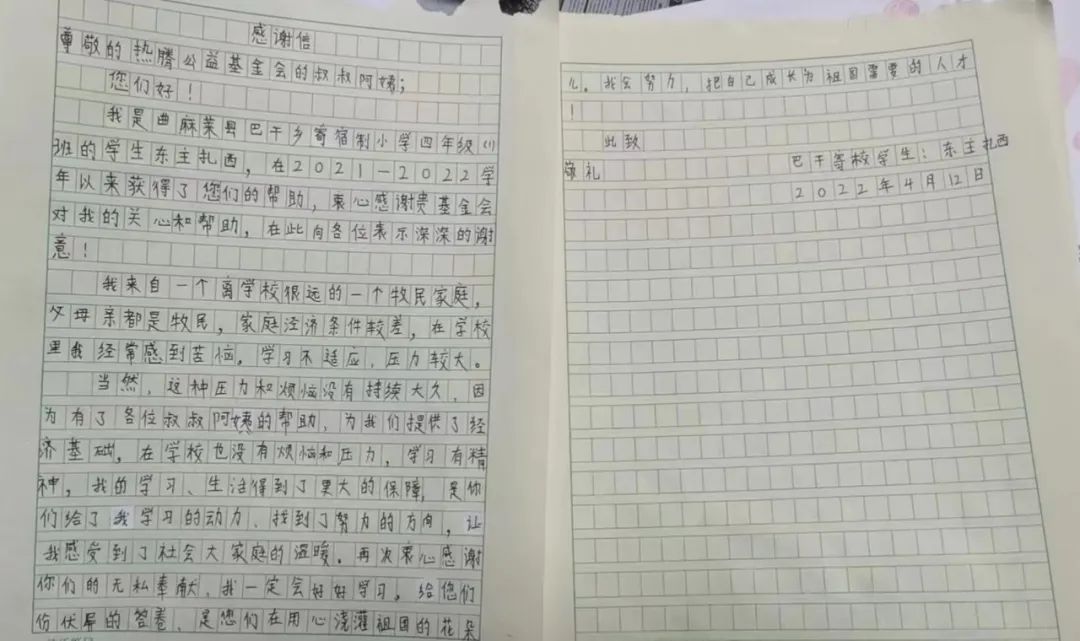 感谢信
尊敬的热腾公益基金会的叔叔阿姨；
您们好！
我是曲麻莱县巴干乡寄宿制小学四年级(1)
班的学生东主扎西，在2021—2022学
年以来获得了您们的帮助，衷心感谢贵基金会
对我的关心和帮助，在此向各位表示深深的谢
意！
我来自一个离学校很远的一个牧民家庭，
父母亲都是牧民，家庭泾济条件较差，在学校
里我经常感到苦恼。学习不适应，压力较大。
当然，这种压力和烦恼没有持续大久，因
为有了各位叔叔阿姨的帮助，为我们提供了经
济基础，在学校也没有烦恼和压力，学习有精
神，我的学习、生活得到了更大的保障，是你
们给了我学习的动力、找到了努力的方向，让
我感受到了社会大家庭的温暖。再次衷心感谢
你们的无私奉献，我一定会好好学习。给您们
份伏屏的答卷、是您们在用心浇灌祖国的花朵
儿。我会努力，把自己成长为祖国需要的人才
！
此致
敬礼
巴干寄校学生：东主扎西
2022年4月12日